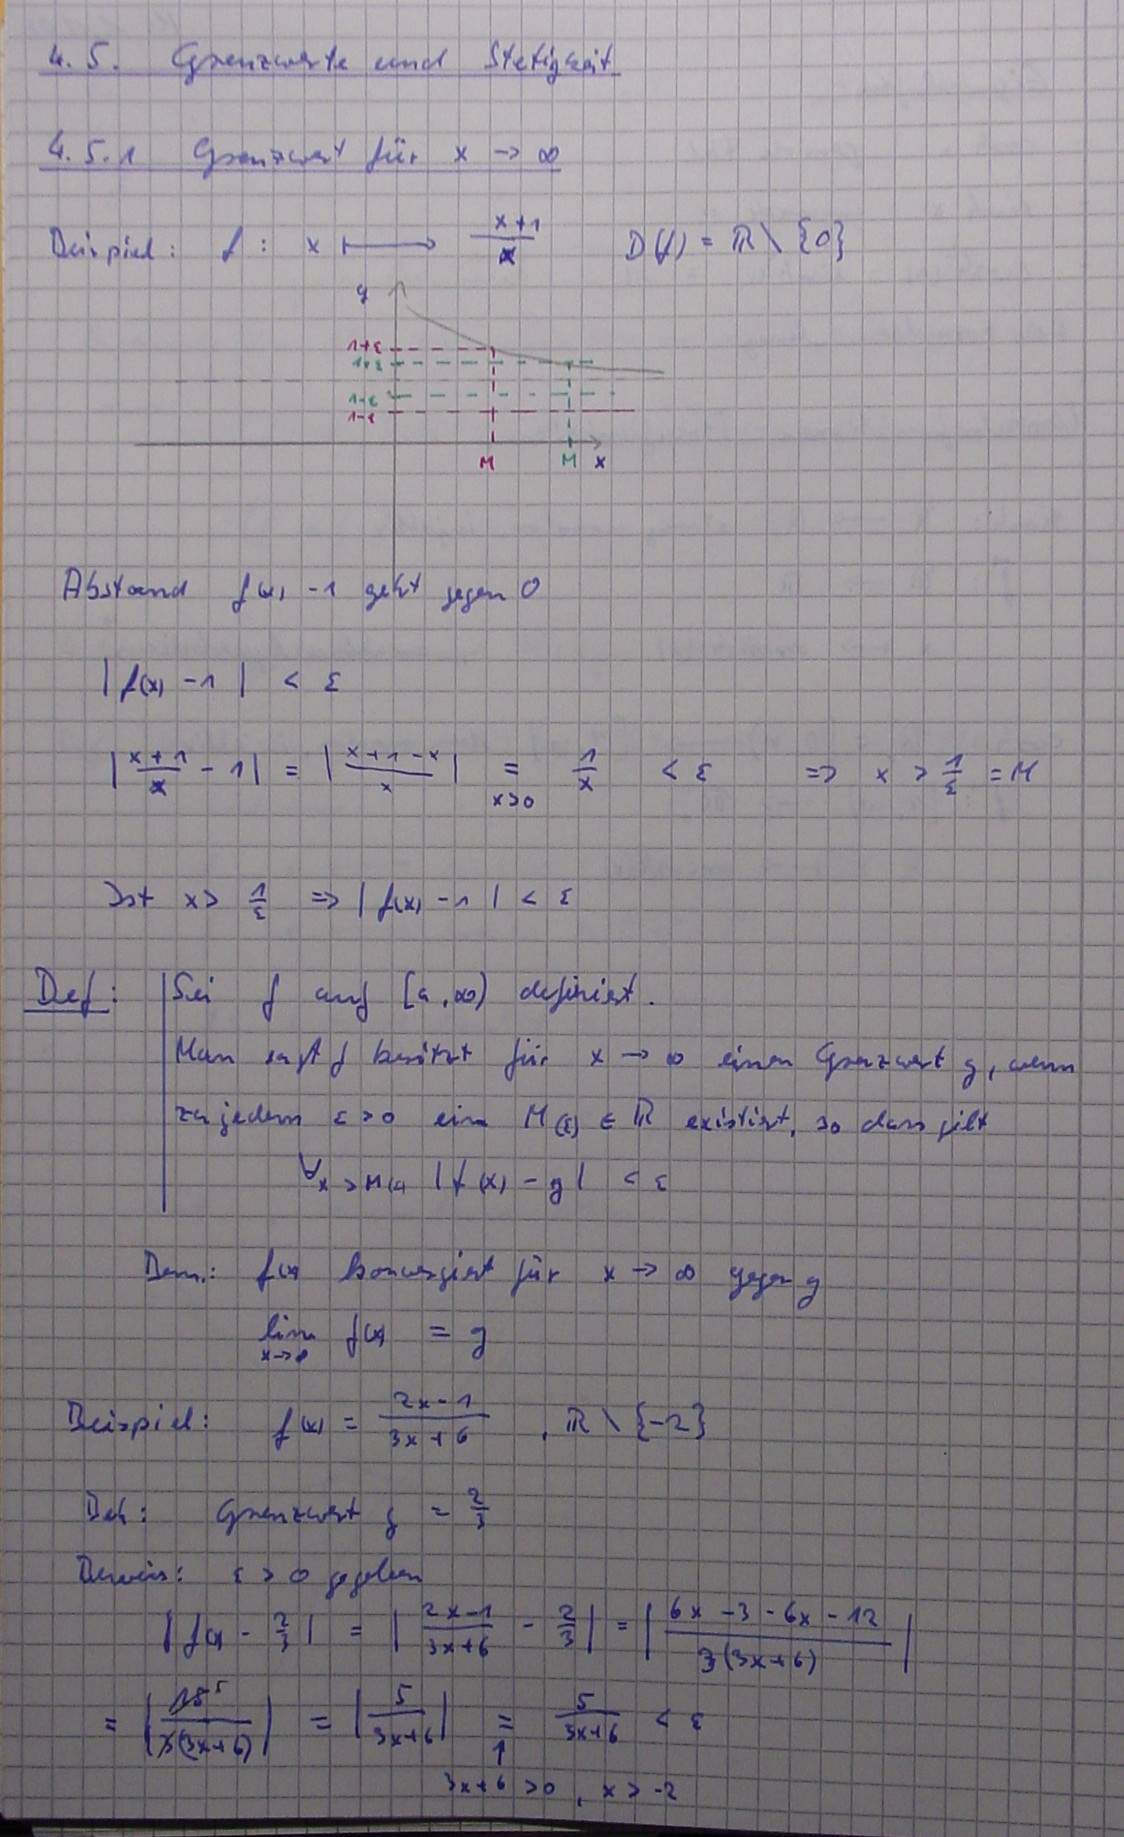 4.5. Grenzwerte und Stetigkeit
4.5.1 Grenzwert für x → ∞
Beispiel: f : x ↦ (x+1)/x D(f) = ℝ \ {0}
y
1+ε
1+ε
1-ε
1-ε
M M x
Abstand f(x) - 1 geht gegen 0
|f(x) - 1| < ε
|(x+1)/x - 1| = |(x+1-x)/x| = 1/x < ε => x > 1/ε = M
x>0
Ist x > 1/ε => |f(x) - 1| < ε
Def: Sei f auf [a, ∞) definiert.
Man sagt f besitzt für x → ∞ einen Grenzwert g, wenn
zu jedem ε > 0 ein M(ε) ∈ ℝ existiert, so dass gilt
∀x > M(ε) |f(x) - g| < ε
Bem.: f(x) konvergiert für x → ∞ gegen g
lim x→∞ f(x) = g
Beispiel: f(x) = (2x-1)/(3x+6) , ℝ \ {-2}
Beh: Grenzwert g = 2/3
Beweis: ε > 0 gegeben
|f(x) - 2/3| = |(2x-1)/(3x+6) - 2/3| = |(6x-3-6x-12)/(3(3x+6))|
= |15 5/(3(3x+6))| = |5/(3x+6)| = 5/(3x+6) < ε
↑
3x+6 > 0 , x > -2